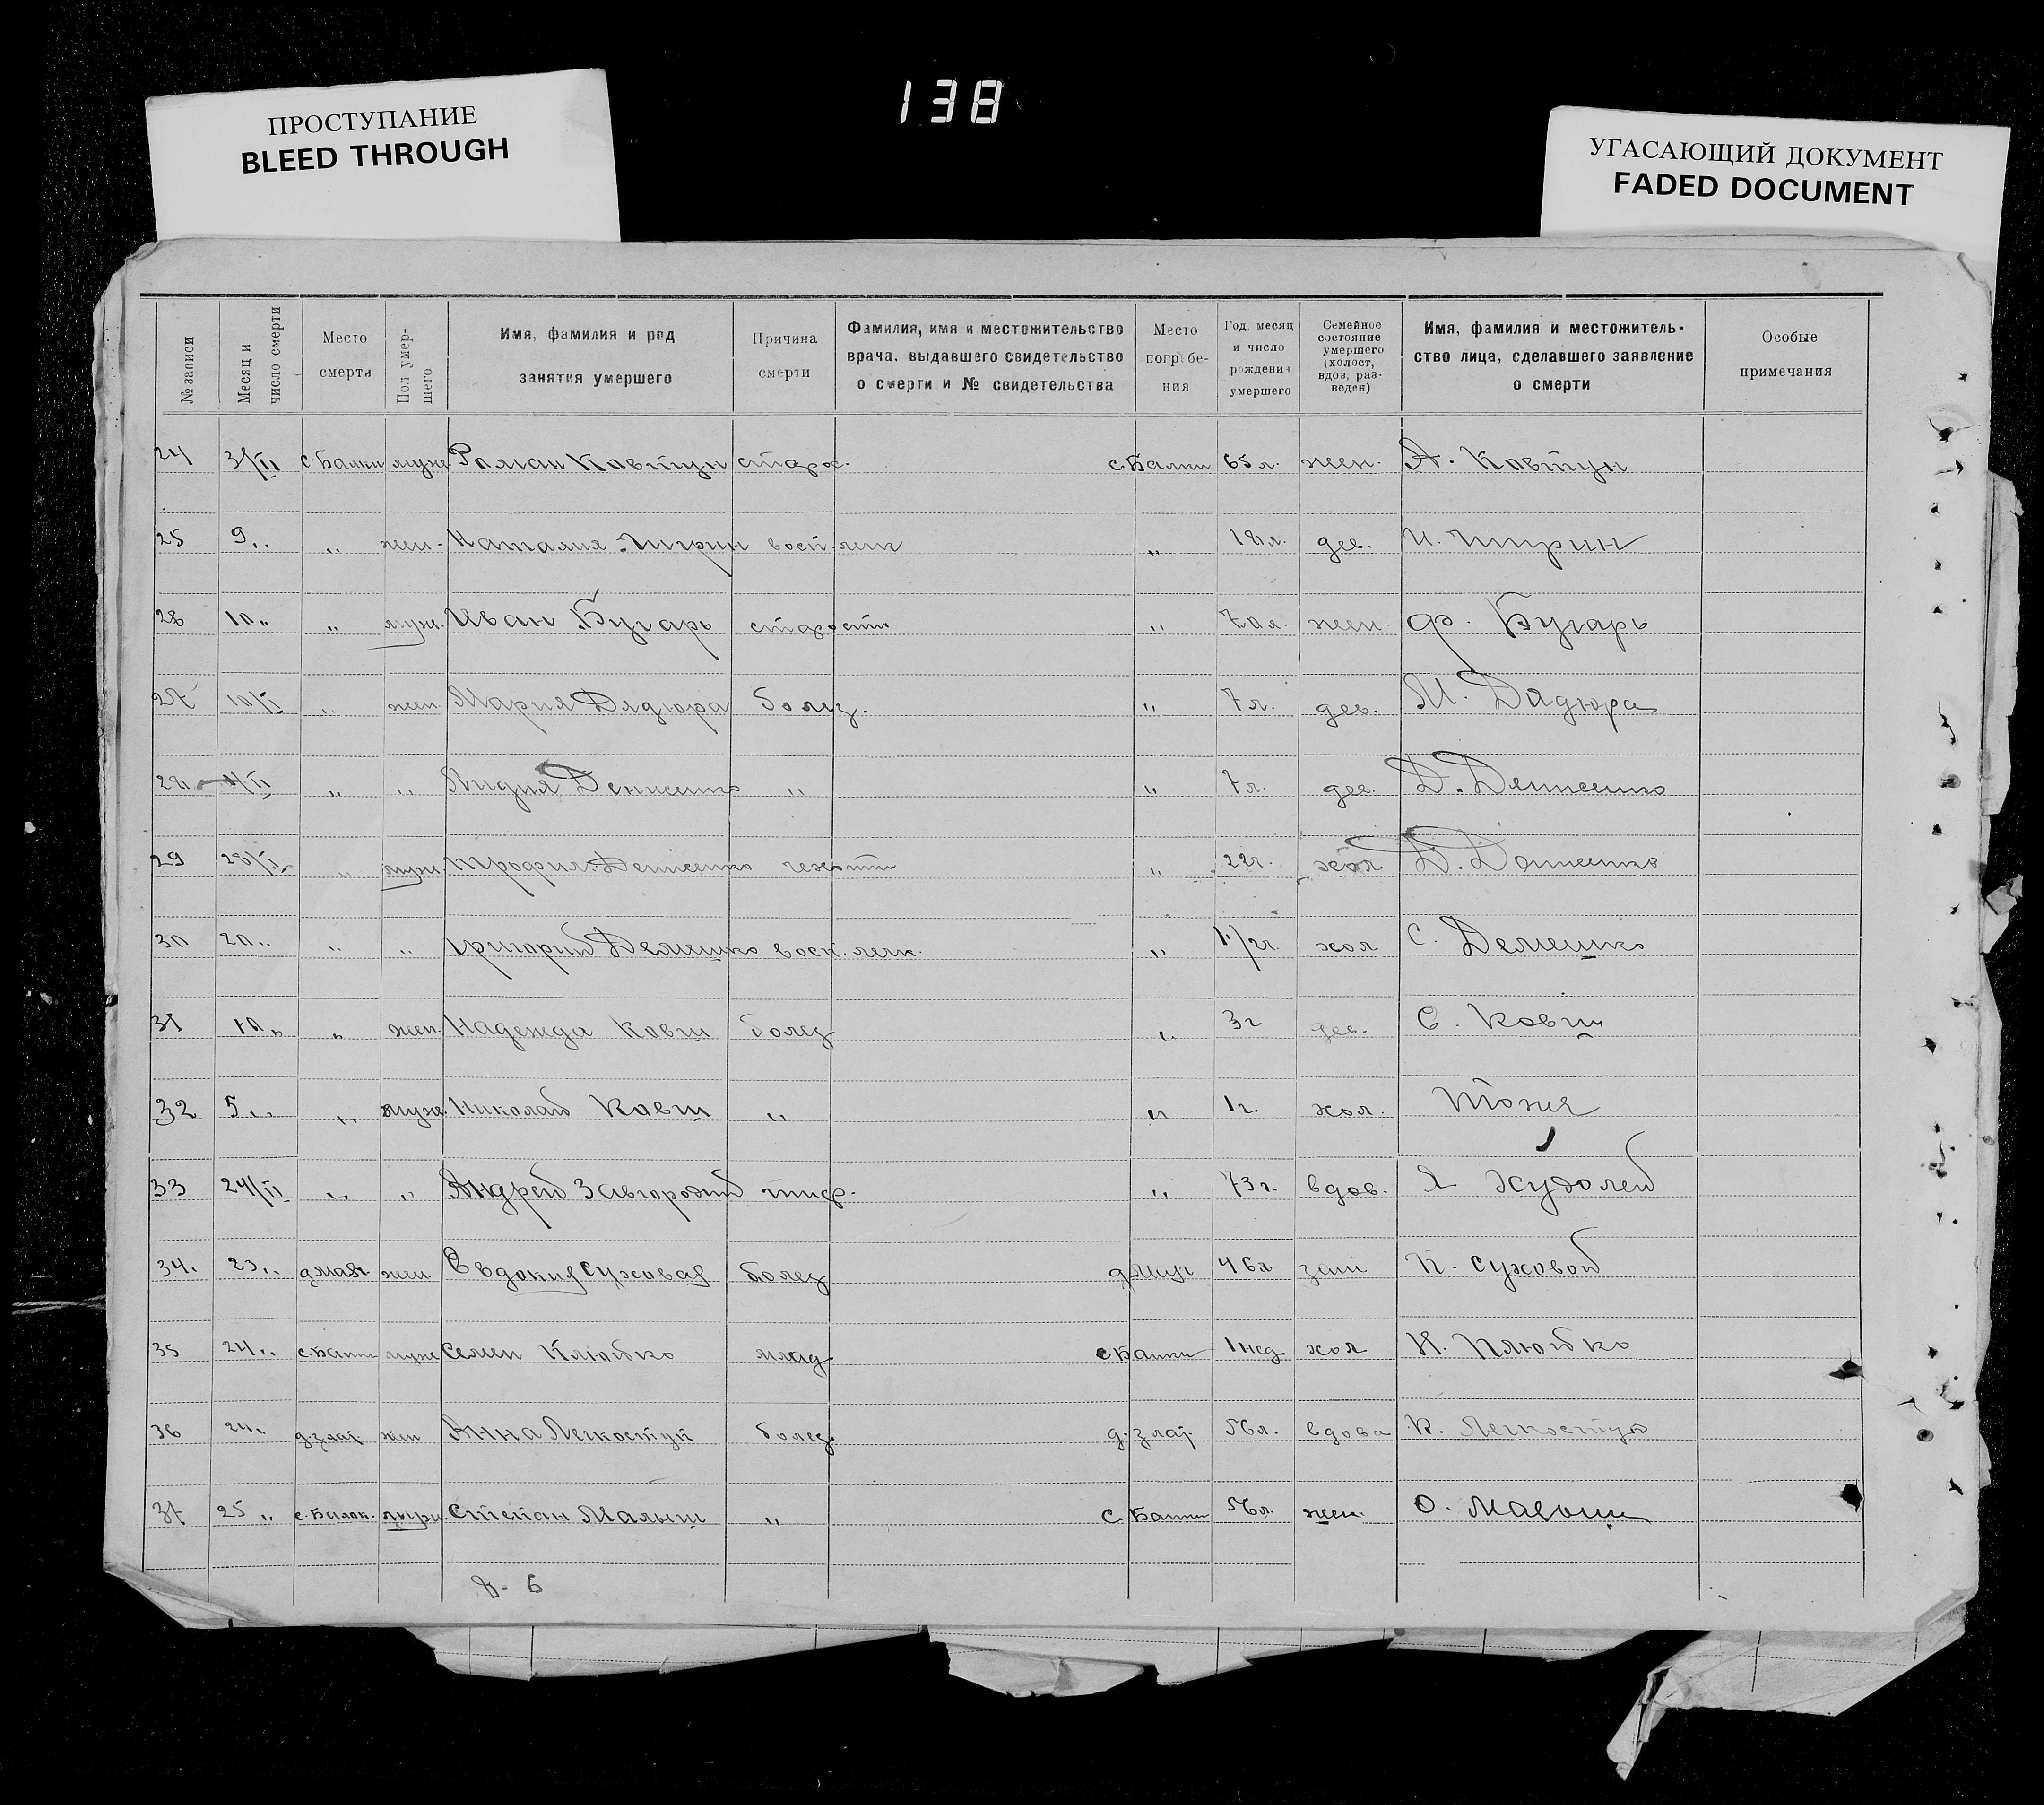 138
ПРОСТУПАНИЕ
BLEED THROUGH
УГАСАЮЩИЙ ДОКУМЕНТ
FADED DOCUMENT
№ записи
Месяц и число смерти
Место смерти
Пол умершего
Имя, фамилия и род занятия умершего
Причина смерти
Фамилия, имя и местожительство врача, выдавшего свидетельство о смерти и № свидетельства
Место погребения
Год, месяц и число рождения умершего
Семейное состояние умершего (холост, вдов, разведен)
Имя, фамилия и местожительство лица, сделавшего заявление о смерти
Особые примечания
24 3/II с. Балки муж Роман Ковтун старос. с. Балки 65 л. жен. А. Ковтун
25 9 " " жен. Наталия восп. легк " дев. И.
26 10 " " муж. Иван Бугарь старости " 70 л. жен. Ф. Бугарь
27 " жен. Мария Дядюра болез. " 7 л. дев. М. Дядюра
28 " " Лидия Денисенко " " 7 л. дев. Д. Денисенко
29 " муж. Трофим Денисенко чехотти " 22 г. хол. Д. Денисенко
30 20 " " " Григорий Демешко восп. легк. " хол С. Демешко
31 10 " " жен. Надежда Ковш болез " 3 г дев. С. Ковш
32 5 " " муж. Николай Ковш " " 1 г. хол. Тоже
33 24/II " " Андрей Завгородний тиф. " 73 г. вдов. Я Худолей
34. 23 " жен Евдокия Суховая болез 46 л зам П. Суховой
35 24 " с. Балки муж Семен млад с Балки 1 нед хол Н.
36 24 " д. злат. жен Анна Легкоступ болез. д. злат. 56 л. вдова К. Легкоступ
37 25 " с. Балк. муж. Степан Малыш " с. Балки 56 л. жен. О. Малыш